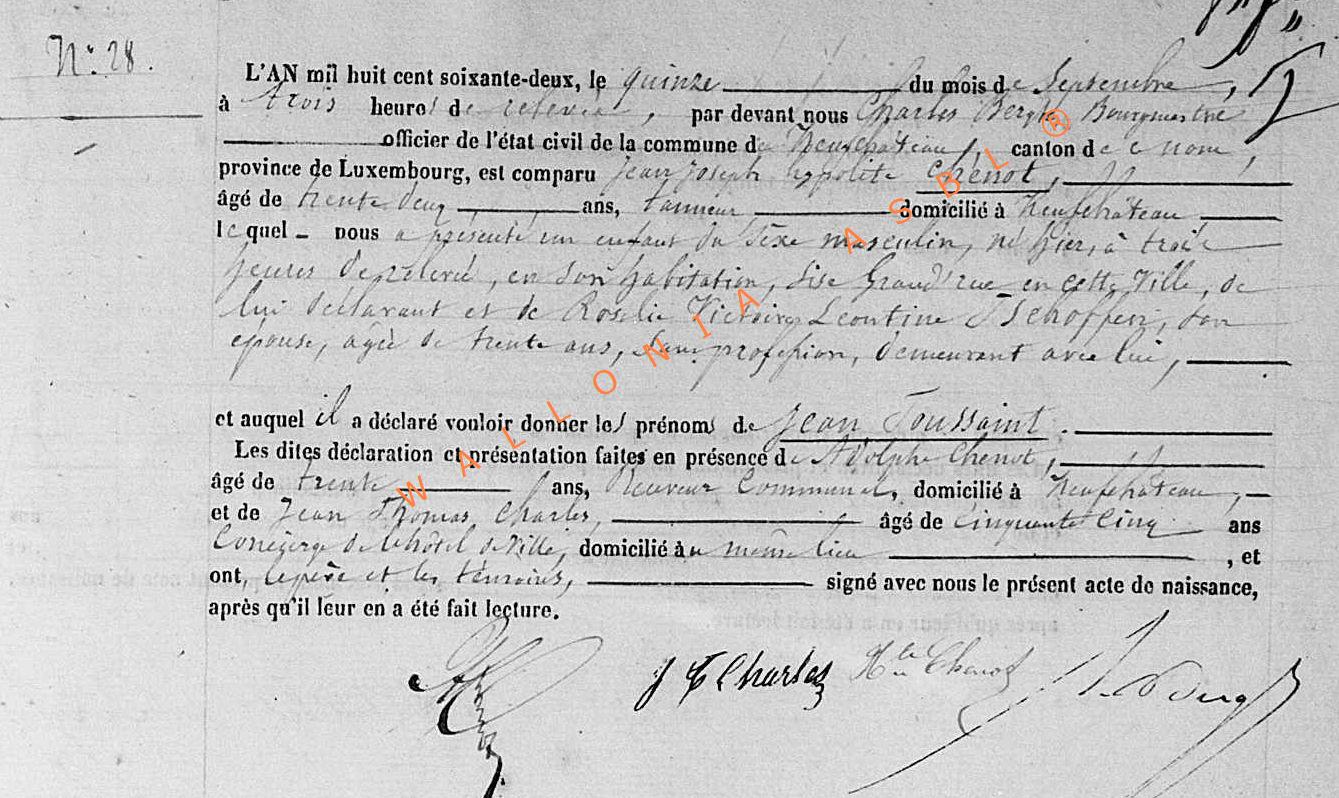 N° 28.
L'AN mil huit cent soixante-deux, le quinze du mois de Septembre,
à trois heures de relevée, par devant nous Charles Bergh Bourgmestre
officier de l'état civil de la commune de Neufchâteau, canton de ce nom,
province de Luxembourg, est comparu Jean Joseph hyppolite Chenot,
âgé de trente deux ans, tanneur domicilié à Neufchâteau
lequel nous a présenté un enfant du Sexe masculin, né hier, à trois
heures de relevée, en son habitation, sise Grand'rue en cette Ville, de
lui déclarant et de Rosalie Victoire Léontine Tschoffen, son
épouse, agée de trente ans, Sans profession, demeurant avec lui,
et auquel il a déclaré vouloir donner les prénoms de Jean Toussaint.
Les dites déclaration et présentation faites en présence de Adolphe Chenot,
âgé de trente ans, Receveur Communal, domicilié à Neufchâteau,
et de Jean Thomas Charles, âgé de Cinquante Cinq ans
Concierge de l'hôtel de Ville, domicilié au même lieu, et
ont, le père et les témoins, signé avec nous le présent acte de naissance,
après qu'il leur en a été fait lecture.
J T Charles Hte Chenot
WALLONIA ASBL ®